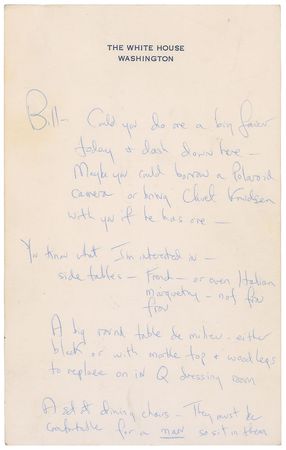 THE WHITE HOUSE
WASHINGTON
Bill— Could you do me a big favor
today & dash down here —
Maybe you could borrow a Polaroid
camera or bring Chuck Knudsen
with you if he has one —
You know what I'm interested in —
side tables — French — or even Italian
marquetry — not frou
frou
A big round table de milieu - either
black or with marble top & wood legs
to replace on in Q dressing room
A set of dining chairs — They must be
comfortable for a man so sit in them